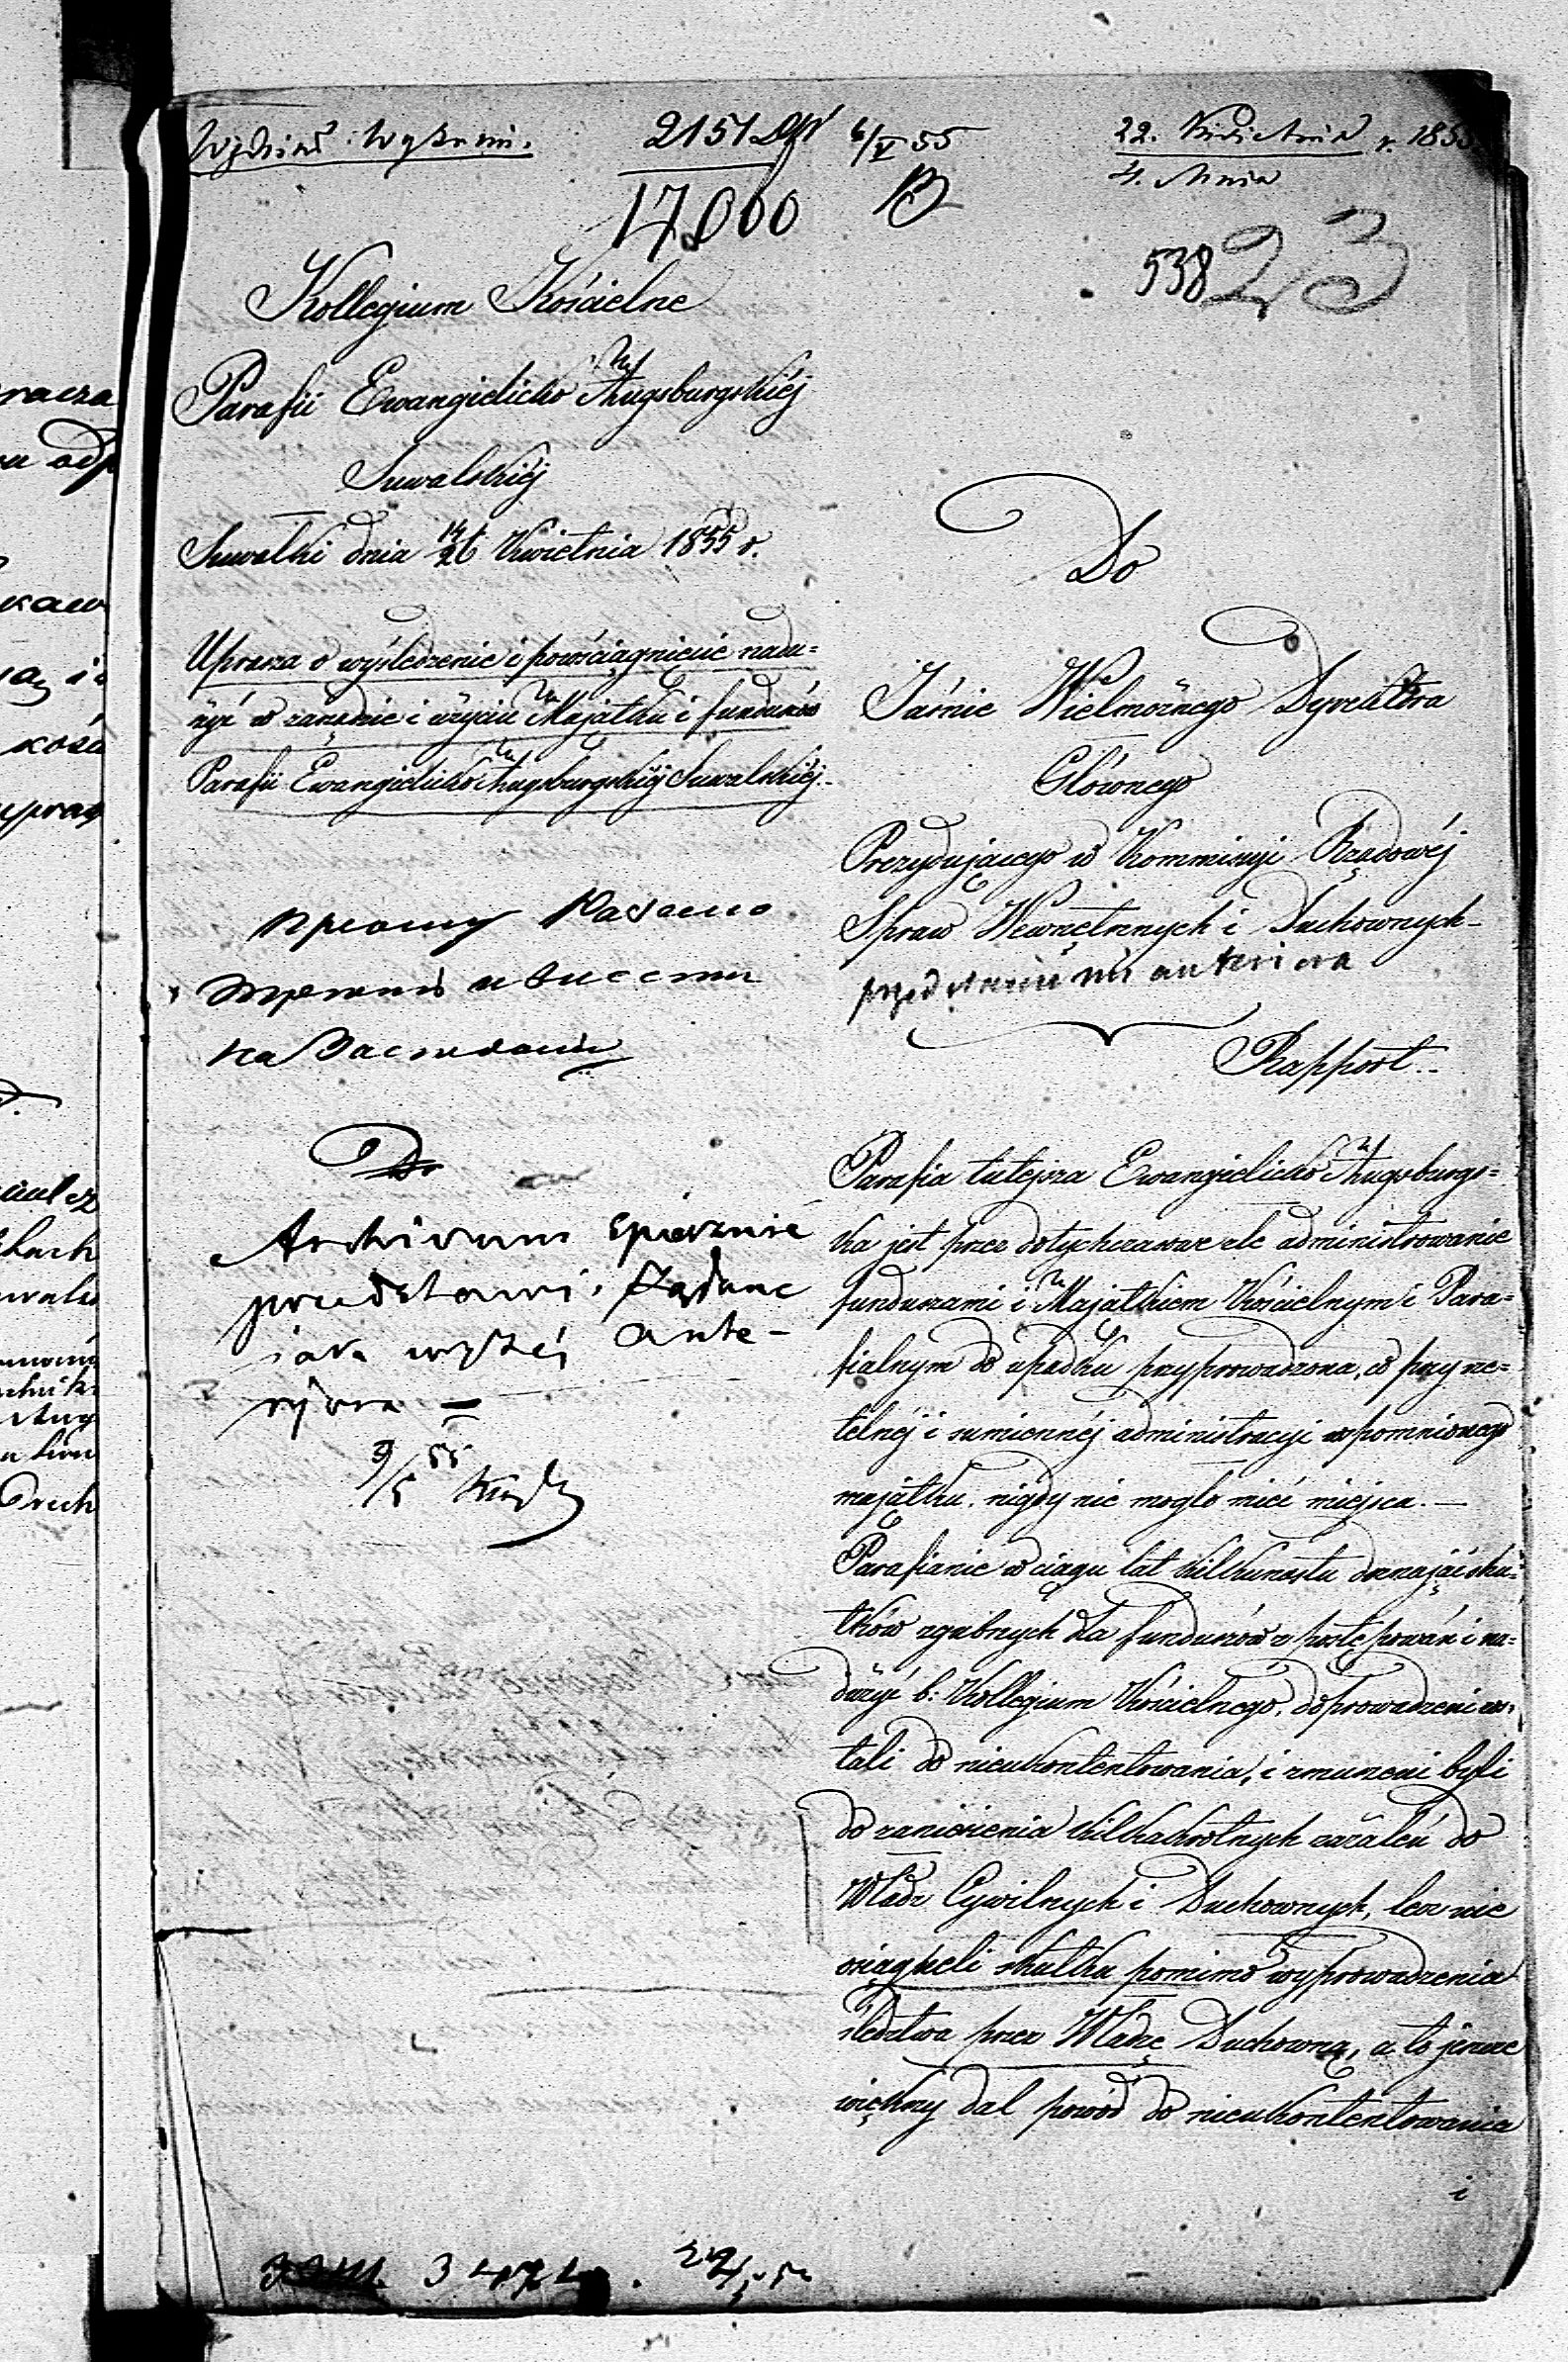 Wydział Wyznań.
2151 DW 6/V 55
22. Kwietnia r. 1855
4. Maja
17000
538 23
Kollegium Kościelne
Parafii Ewangielicko Augsburgskiéj
Suwalskiéj
Suwałki dnia 14/26 Kwietnia 1855 r.
Uprasza o wyśledzenie i powściągnięcie nadu=
żyć w zarządzie i użyciu Majątku i funduszów
Parafii Ewangielicko Augsburgskiéj Suwalskiéj.
Do
Archiwum śpiesznie
przedstawi, żądane
jak wyżéj ante-
ryora —
9/5 55
Do
Jaśnie Wielmożnego Dyrektora
Głównego
Prezydującego w Kommissyi Rządowéj
Spraw Wewnętrznych i Duchownych
przedstawić mi anteriora
Rapport.
Parafia tutejsza Ewangielicko Augsburgs=
ka jest przez dotychczasowe złe administrowanie
funduszami i Majątkiem Kościelnym i Para=
fialnym do upadku przyprowadzona, co przy rze=
telnéj i sumiennéj administracyi wspomnionego
majątku, nigdy nie mogło mieć miejsca. —
Parafianie w ciągu lat kilkunastu doznając sku=
tków zgubnych dla funduszów z postępowań i na=
dużyć b: Kollegium Kościelnego, doprowadzeni zos=
tali do nieukontentowania, i zmuszeni byli
do zaniesienia kilkakrotnych zażaleń do
Władz Cywilnych i Duchownych, lecz nie
osiągneli skutku pomimo wyprowadzenia
śledztwa przez Władzę Duchowną, a to jeszcze
większy dał powód do nieukontentowania
i